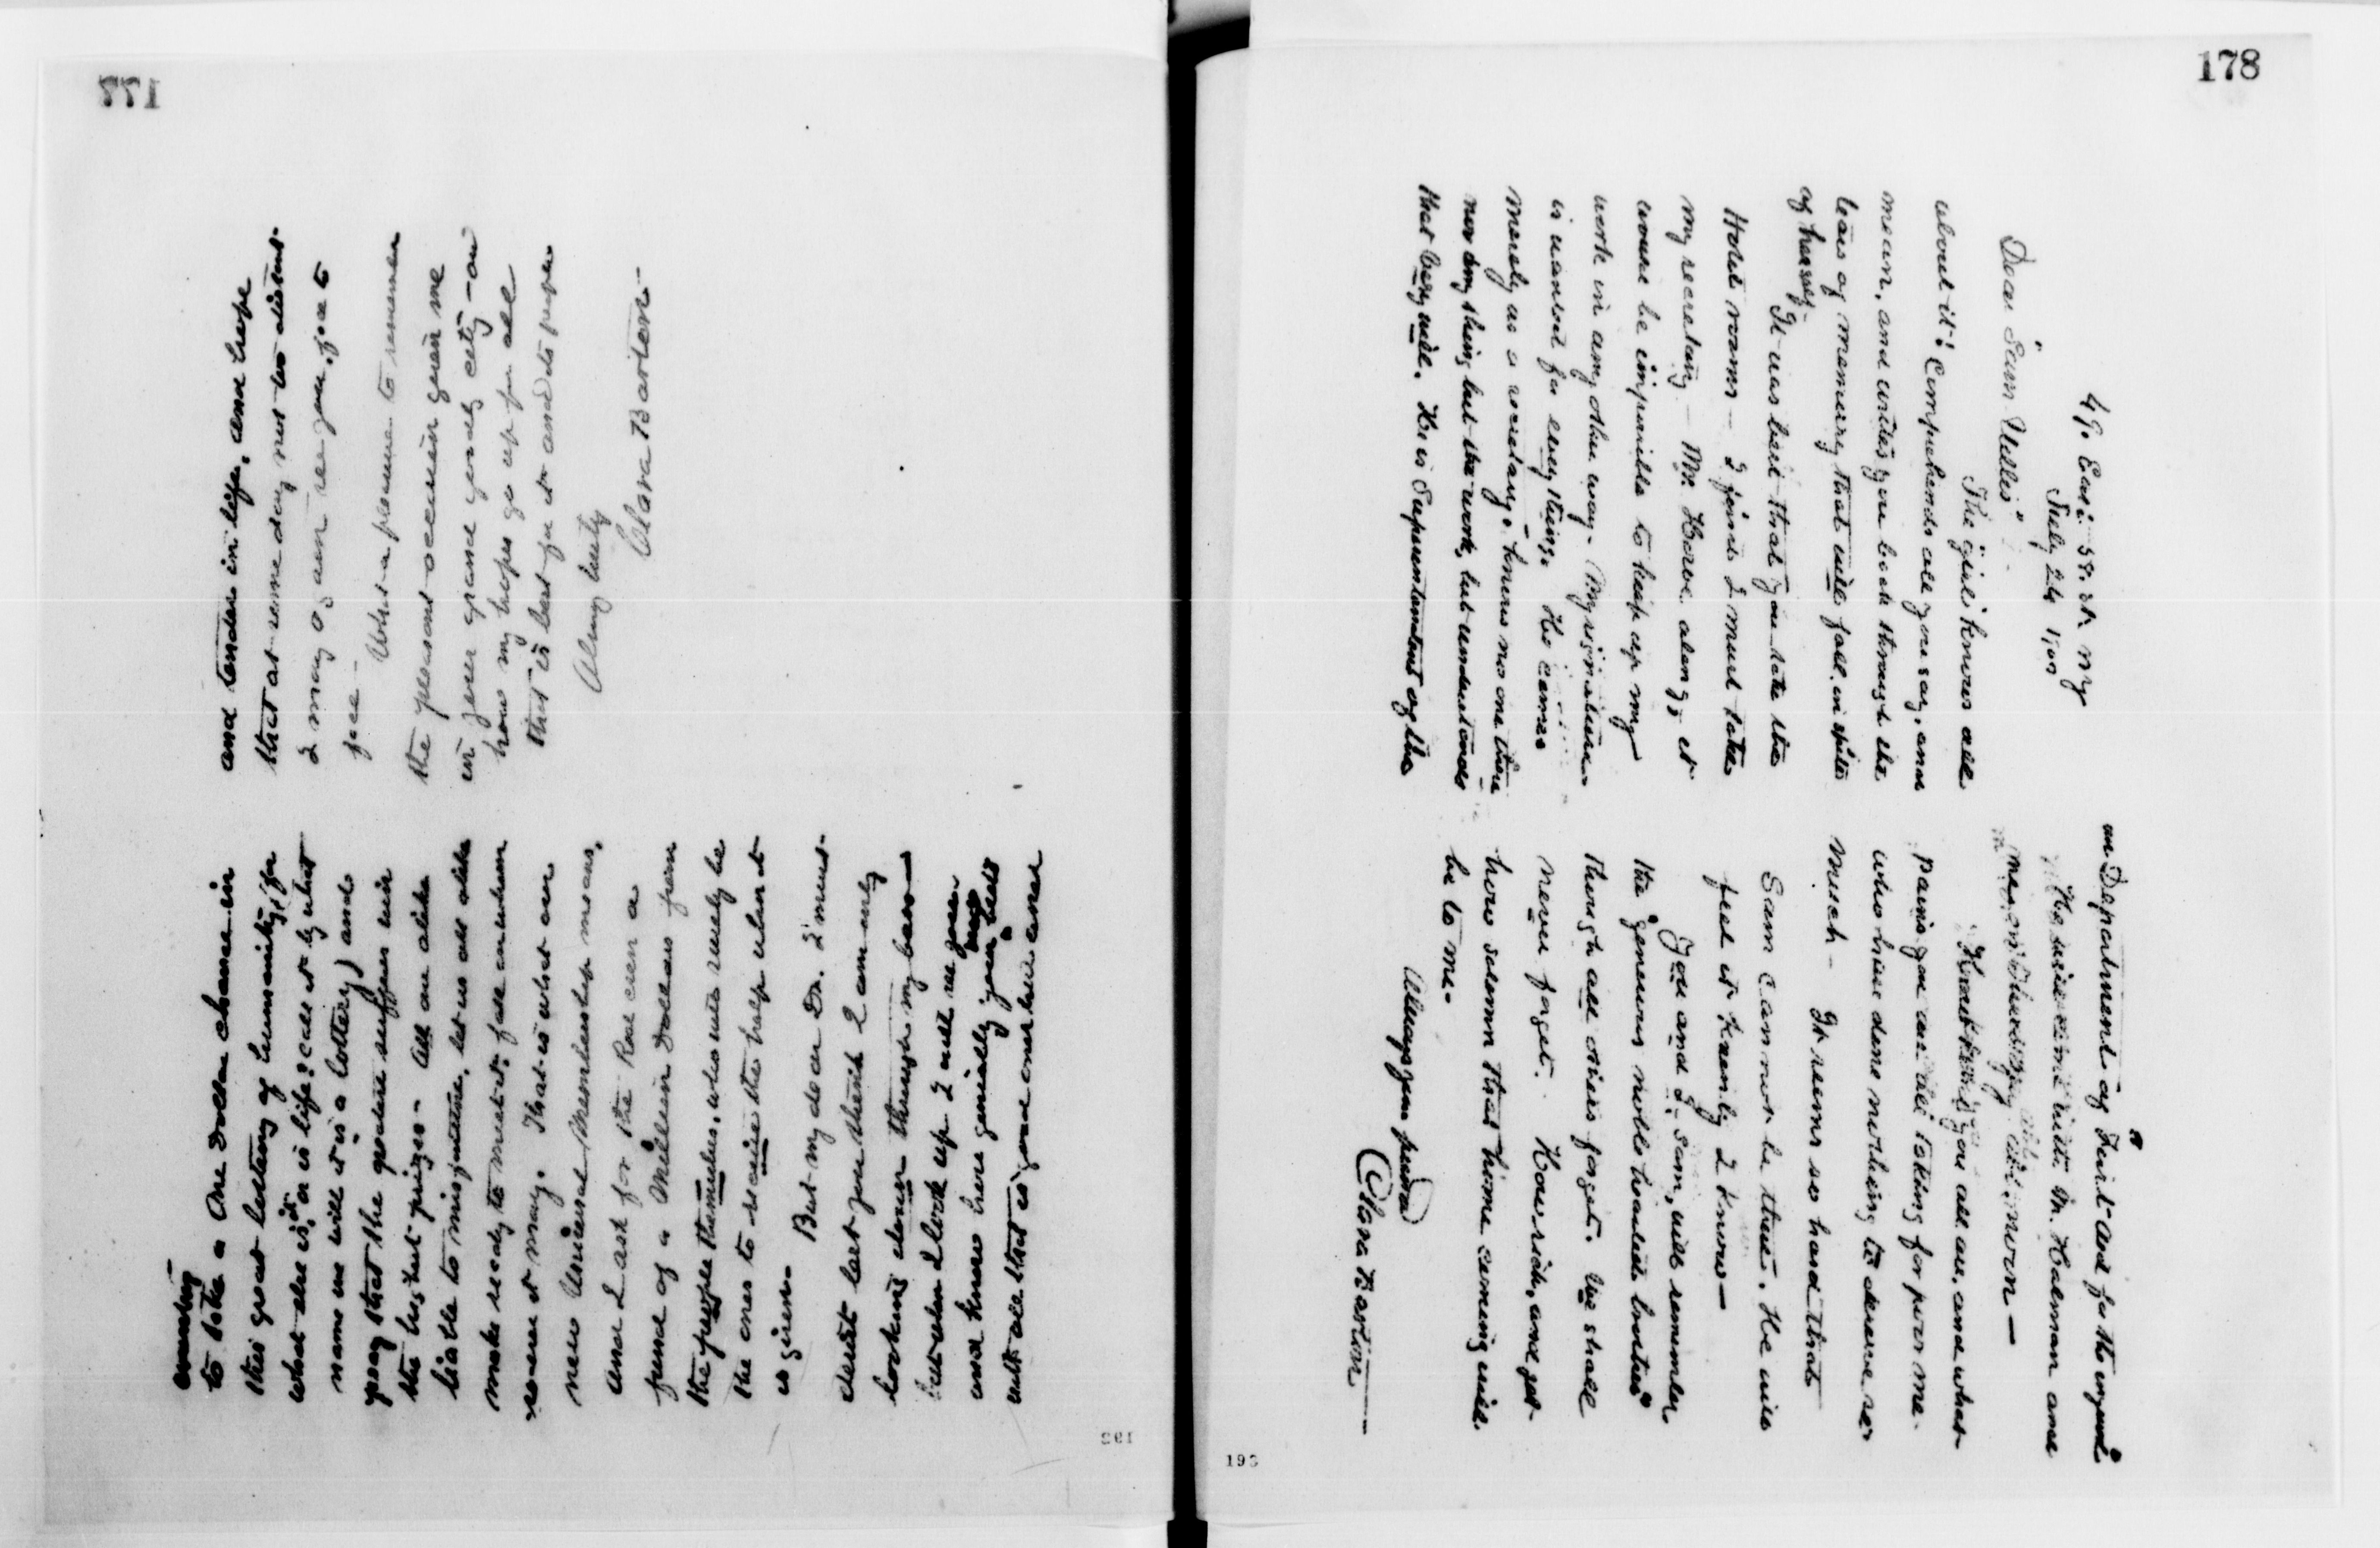 country
to take a One Dollar chance in
this great lottery of humanity, (for
what else is it, or is life? call it by what
name we will it is a lottery) and
pray that the poorest suffer win
the highest prizes - All are alike
liable to misfortune, let us all alike
make ready to meet it, fall on whom
soever it may. That is what our
new Universal Membership means,
and I ask for the Red even a
fund of a Million Dollars from
the people themselves, who will surely be
the ones to receive the help when it
is given.
But my dear Dr. I must
desist lest you think I am only
looking down through my
but when I look up I will see your
and know how genially your heart
with all that is good and true and
and tender in life, and hope
that at some day not too distant
I may again see you, face to
face -
What a pleasure to remember
the pleasant occasion given me
in your grand goodly city - and
how my hopes go up for all
that is best for it and its people
Always truly
Clara Barton -
221
193
178
49. East 59. St. N Y
July 24 1,00
Dear Sam Willis
The girl knows all
about it! Comprehends all you say, and
mean, and writes you back through the
tears of memory that will fall in spite
of herself -
It was best that you take the
Hotel rooms - I find I must take
my secretary - Mr. Howe along, it
would be impossible to keep up my
work in any other way - My signature
is wanted for every thing. He comes
merely as a secretary - knows no one there
nor any thing but the work, but understands
that very well. He is Superintendent of the
Department of
He will come with Mr. Holman and
me on Thursday morn -
How kind you all are, and what
pains you are all taking for poor me -
who have done nothing to deserve so
much - It seems so hard that
Sam cannot be there. He will
feel it keenly I know -
You and I, Sam, will remember
the generous noble hearted brother
though all others forget. We shall
never forget. How rich, and yet
how solemn that home coming will
be to me.
Always your friend
Clara Barton
193